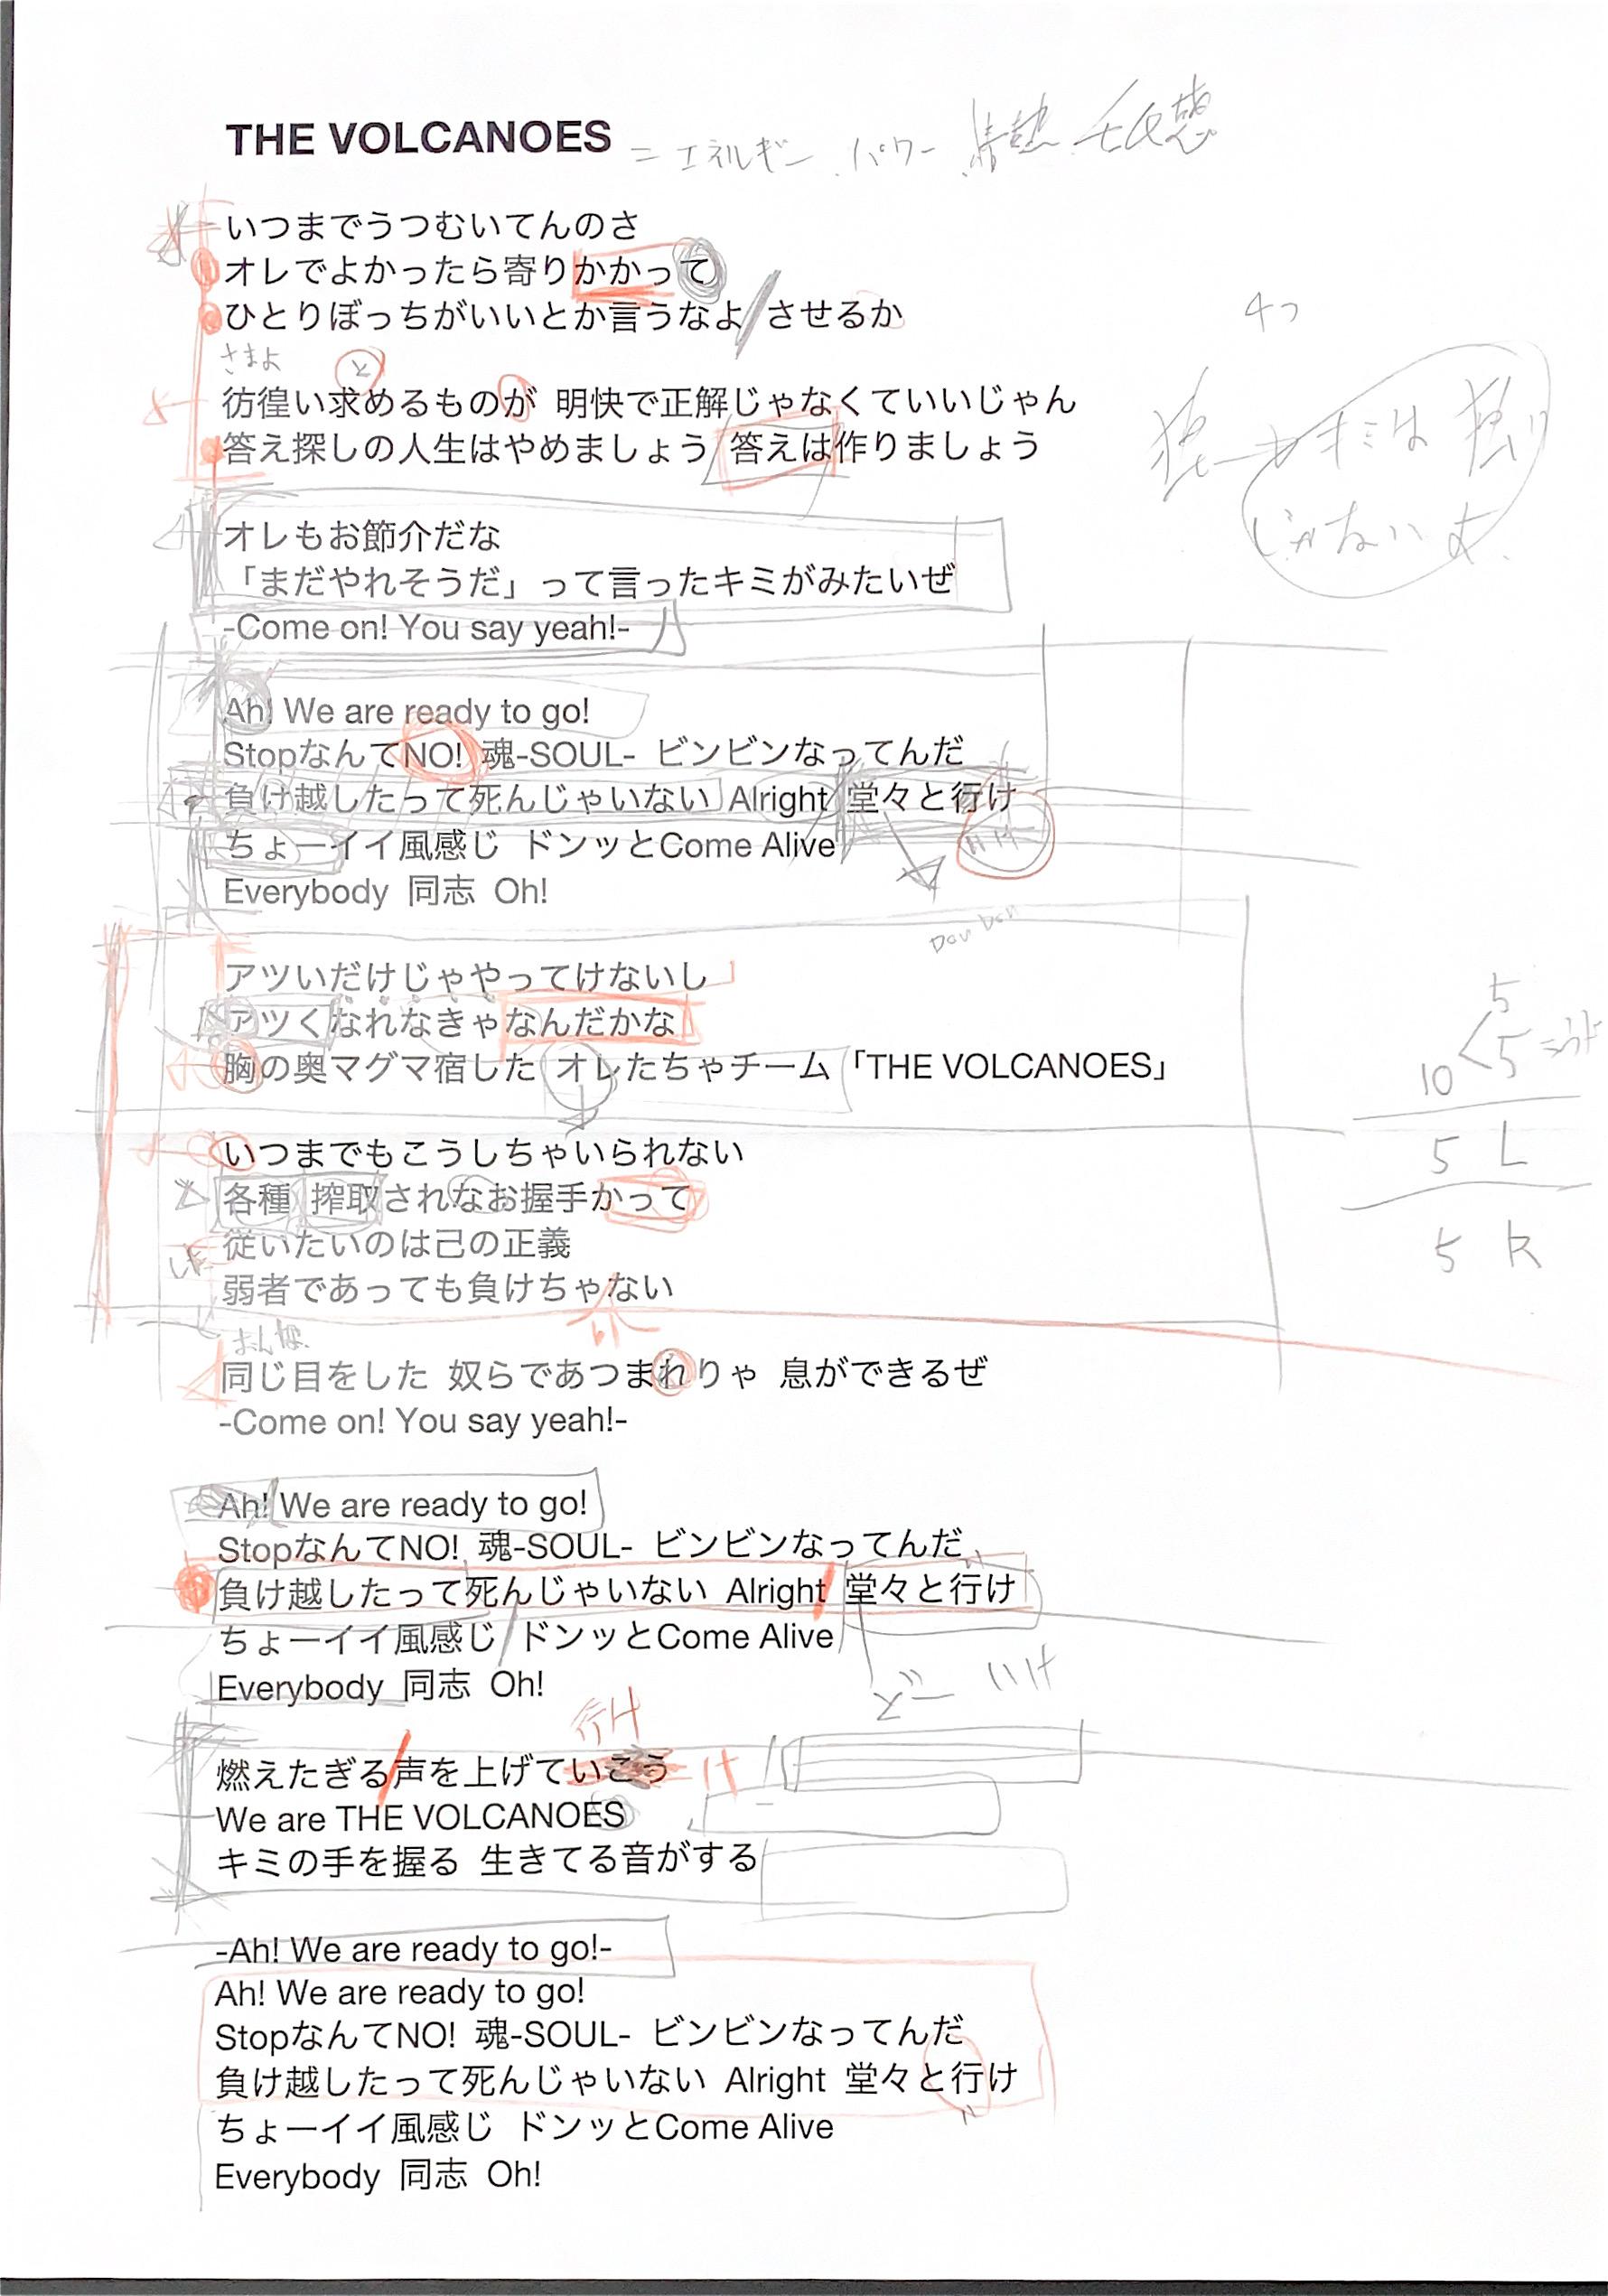 THE VOLCANOES = エネルギー、パワー、情熱
いつまでうつむいてんのさ
オレでよかったら寄りかかって
ひとりぼっちがいいとか言うなよ させるか
さまよ
と
彷徨い求めるものが 明快で正解じゃなくていいじゃん
答え探しの人生はやめましょう 答えは作りましょう
キミは独り
じゃないよ
オレもお節介だな
「まだやれそうだ」って言ったキミがみたいぜ
-Come on! You say yeah!-
Ah! We are ready to go!
StopなんてNO! 魂-SOUL- ビンビンなってんだ
負け越したって死んじゃいない Alright 堂々と行け
ちょーイイ風感じ ドンッとCome Alive
いけ
Everybody 同志 Oh!
Don Don
アツいだけじゃやってけないし
アツくなれなきゃなんだかな
胸の奥マグマ宿した オレたちゃチーム「THE VOLCANOES」
5
10 5
5 L
5 R
いつまでもこうしちゃいられない
各種 搾取されなお握手かって
従いたいのは己の正義
弱者であっても負けちゃない
おんなじ
同じ目をした 奴らであつまれりゃ 息ができるぜ
-Come on! You say yeah!-
Ah! We are ready to go!
StopなんてNO! 魂-SOUL- ビンビンなってんだ
負け越したって死んじゃいない Alright 堂々と行け
ちょーイイ風感じ ドンッとCome Alive
Everybody 同志 Oh!
どー いけ
行け
燃えたぎる声を上げていこう け
We are THE VOLCANOES
キミの手を握る 生きてる音がする
-Ah! We are ready to go!-
Ah! We are ready to go!
StopなんてNO! 魂-SOUL- ビンビンなってんだ
負け越したって死んじゃいない Alright 堂々と行け
ちょーイイ風感じ ドンッとCome Alive
Everybody 同志 Oh!